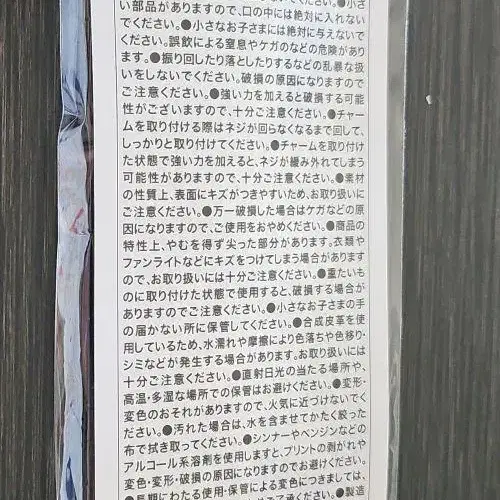 てください。●小さ
い部品がありますので、口の中には絶対に入れない
でください。●小さなお子さまには絶対に与えないで
ください。誤飲による窒息やケガのなどの危険があり
ます。●振り回したり落としたりするなどの乱暴な扱
いをしないでください。破損の原因になりますので
ご注意ください。●強い力を加えると破損する可能
性がございますので、十分ご注意ください。●チャー
ムを取り付ける際はネジが回らなくなるまで回して、
しっかりと取り付けてください。●チャームを取り付け
た状態で強い力を加えると、ネジが緩み外れてしまう
可能性がありますので、十分ご注意ください。●素材
の性質上、表面にキズがつきやすいため、お取り扱いに
ご注意ください。●万一破損した場合はケガなどの原
因になりますので、ご使用をおやめください。●商品の
特性上、やむを得ず尖った部分があります。衣類や
ファンライトなどにキズをつけてしまう場合があります
ので、お取り扱いには十分ご注意ください。●重たいも
のに取り付けた状態で使用すると、破損する場合が
ありますのでご注意ください。●小さなお子さまの手
の届かない所に保管してください。●合成皮革を使
用しているため、水濡れや摩擦により色落ちや色移り・
シミなどが発生する場合があります。お取り扱いには
十分ご注意ください。●直射日光の当たる場所や、
高温・多湿な場所での保管はお避けください。●変形・
変色のおそれがありますので、火気に近づけないで
ください。●汚れた場合は、水を含ませてかたく絞った
布で拭き取ってください。●シンナーやベンジンなどの
アルコール系溶剤を使用しますと、プリントの剥がれや
変色・変形・破損の原因になりますのでお避けください。
●長期にわたる使用・保管による変色につきましては、
ご了承ください。●製造